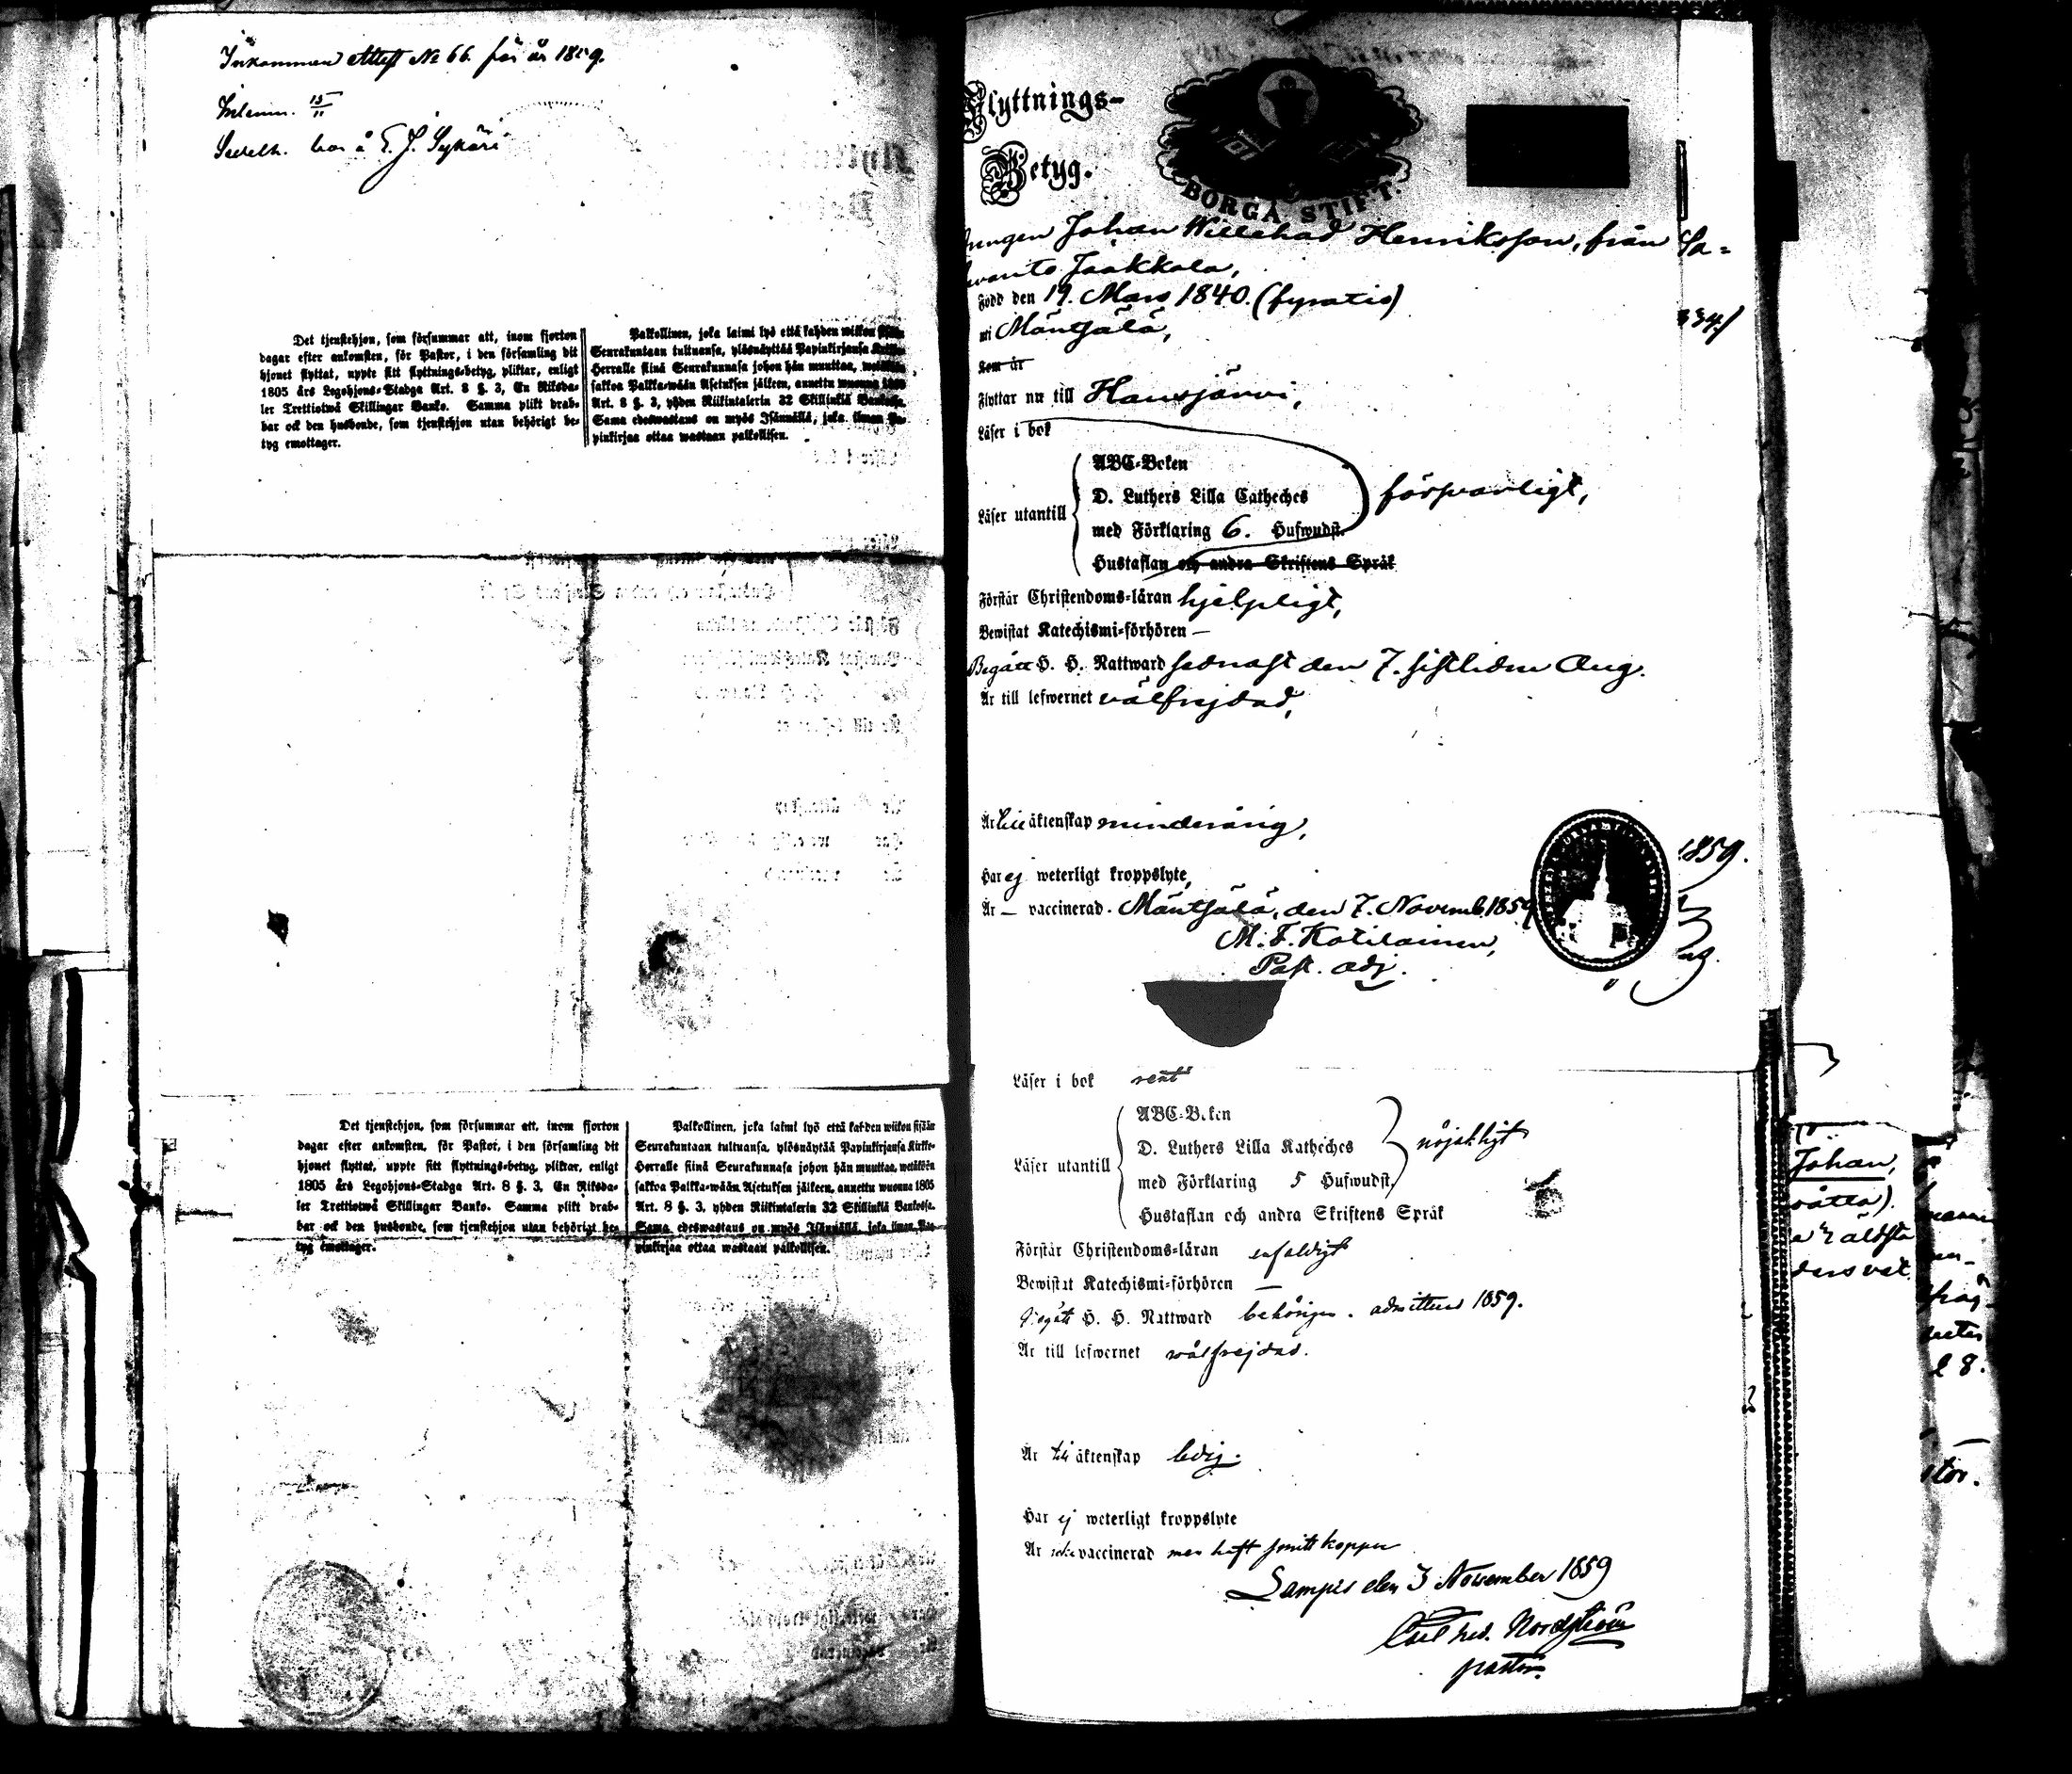 Inkommen Attest No 66. för år 1859.
Inlemn. 15/11
Det tjenstehjon, som försummar att, inom fjorton
dagar efter ankomsten, för Pastor, i den församling dit
hjonet flyttat, uppte sitt flyttnings-betyg, pliktar, enligt
1805 års Legohjons-Stadga Art. 8 §. 3, En Riksda-
ler Trettiotwå Skillingar Banko. Samma plikt drab-
bar ock den husbonde, som tjenstehjon utan behörigt be-
tyg emottager.
Palkollinen, joka laimi lyö että kahden wiikon
Seurakuntaan tultuansa, ylösnäyttää Papinkirjansa
Herralle siinä Seurakunnasa johon hän muuttaa,
sakkoa Palkka-wään Asetuksen jälkeen, annettu wuonna 1805
Art. 8 §. 3, yhden Riikintalerin 32 Skillinkiä Bankossa.
Sama edeswastaus on myös Isännällä, joka ilman Pa-
pinkirjaa ottaa wastaan palkollisen.
Det tjenstehjon, som försummar att, inom fjorton
dagar efter ankomsten, för Pastor, i den församling dit
hjonet flyttat, uppte sitt flyttnings-betyg, pliktar, enligt
1805 års Legohjons-Stadga Art. 8 §. 3, En Riksda-
ler Trettiotwå Skillingar Banko. Samma plikt drab-
bar ock den husbonde, som tjenstehjon utan behörigt be-
tyg emottager.
Palkollinen, joka laimi lyö että kahden wiikon sisään
Seurakuntaan tultuansa, ylösnäytää Papinkirjansa Kirkko-
Herralle siinä Seurakunnasa johon hän muuttaa, wetäköön
sakkoa Palkka-wään Asetuksen jälkeen, annettu wuonna 1805
Art. 8 §. 3, yhden Riikintalerin 32 Skillinkiä Bankossa.
Sama edeswastaus on myös Isännällä, joka ilman Pa-
pinkirjaa ottaa wastaan palkollisen.
Flyttnings-
Betyg.
BORGÅ STIFT.
Drengen Johan Willehad Henriksson, från Sa=
Jaakkola,
Född den 19. Mars 1840. (fyratio)
uti Mäntsälä,
Som är
Flyttar nu till Hausjärvi,
Läser i bok
Läser utantill
ABC-Boken
D. Luthers Lilla Catheches
med Förklaring 6. Hufwudst.
Hustaflan och andra Skriftens Språk
försvarligt,
Förstår Christendoms-läran hjelpligt,
Bewistat Katechismi-förhören —
Begått H. H. Nattward sednast den 7. sistliden Aug.
Är till lefwernet välfrejdad,
Är till äktenskap minderårig,
Har ej weterligt kroppslyte,
Är — vaccinerad. Mäntsälä, den 7. Novemb. 1859
M. F. Kotilainen,
Past. adj.
334/
1859.
Läser i bok rent
Läser utantill
ABC-Boken
D. Luthers Lilla Katheches
med Förklaring 5 Hufwudst.
Hustaflan och andra Skriftens Språk
nöjaktigt
Förstår Christendoms-läran enfaldigt
Bewistat Katechismi-förhören —
Begått H. H. Nattward behörigen. admitterad 1859.
Är till lefwernet wälfrejdad.
Är till äktenskap ledig.
Har ej weterligt kroppslyte
Är icke vaccinerad men haft smittkoppor
Lampis den 3 November 1859
Carl Fred. Nordström
pastor.
Johan,
äldsta
l 8.